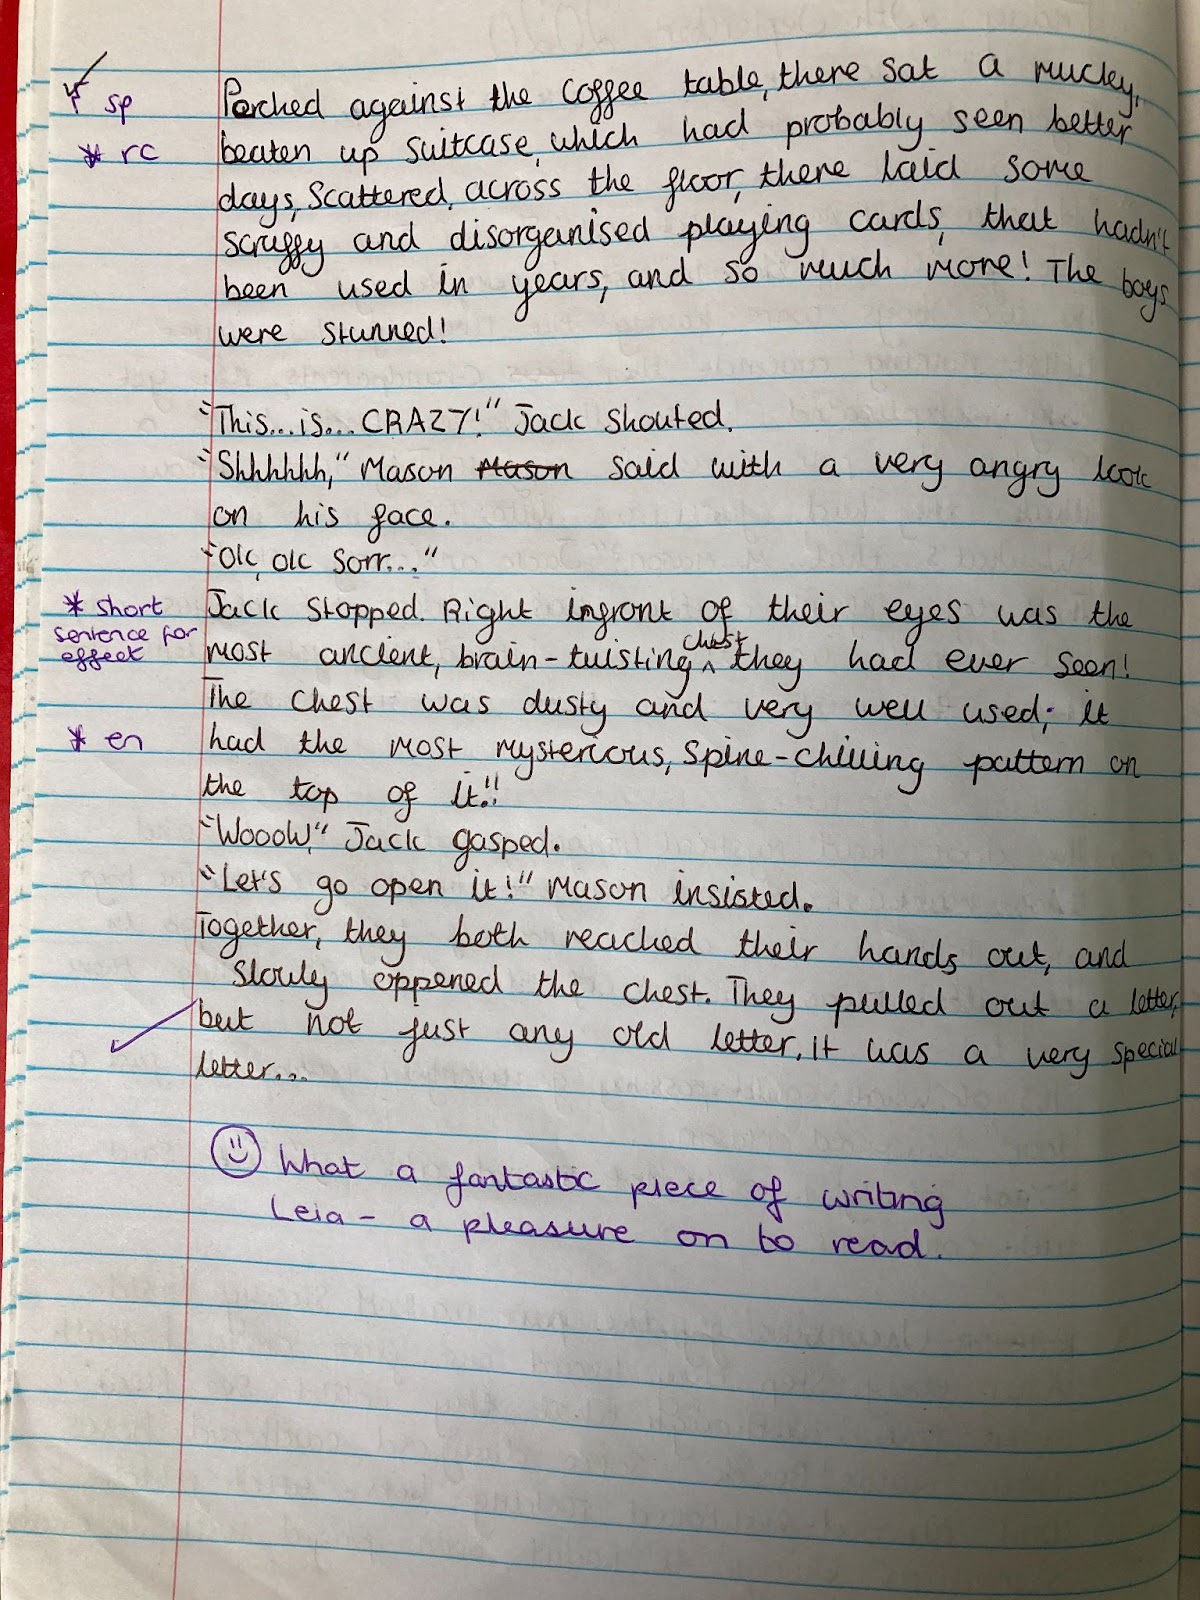 sp
Perched against the coffee table, there sat a mucky,
* rc
beaten up suitcase, which had probably seen better
days, Scattered, across the floor, there laid some
scruffy and disorganised playing cards, that hadn't
been used in years, and so much more! The boys
were stunned!
"This...is... CRAZY!" Jack shouted.
"Shhhhhh," Mason Mason said with a very angry look
on his face.
"Ok, ok sorr..."
* short
sentence for
effect
Jack stopped. Right infront of their eyes was the
most ancient, brain-twisting chest they had ever seen!
The chest was dusty and very well used; it
* en
had the most mysterious, spine-chilling pattern on
the top of it!!
"Wooow," Jack gasped.
"Let's go open it!" Mason insisted.
Together, they both reached their hands out, and
slowly oppened the chest. They pulled out a letter,
but not just any old letter, it was a very special
letter...
What a fantastic piece of writing
Leia - a pleasure on to read.